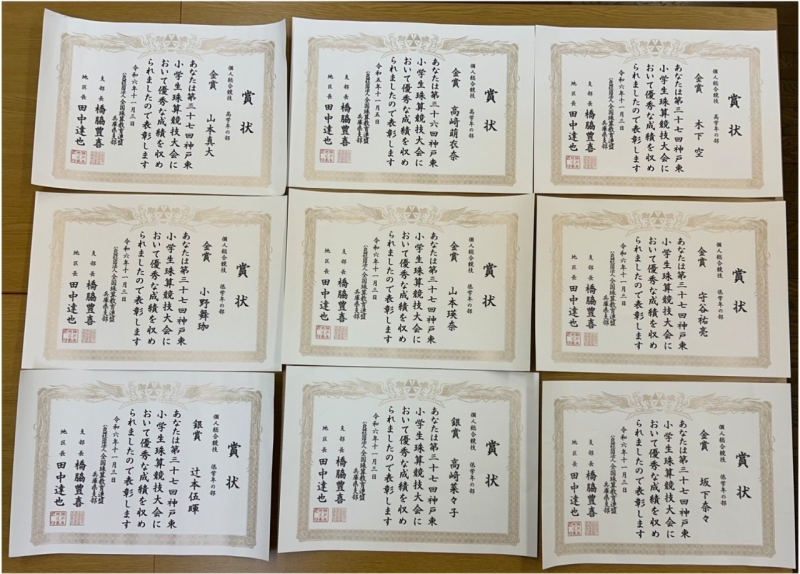 賞状
個人総合競技 高学年の部
金賞 山本真大
あなたは第三十七回神戸東
小学生珠算競技大会に
おいて優秀な成績を収め
られましたので表彰します
令和六年十一月三日
公益社団法人全国珠算教育連盟
兵庫県支部
支部長 橋脇豊喜
地区長 田中達也
賞状
個人総合競技 高学年の部
金賞 高崎萌衣奈
あなたは第三十六回神戸東
小学生珠算競技大会に
おいて優秀な成績を収め
られましたので表彰します
令和五年十一月五日
公益社団法人全国珠算教育連盟
兵庫県支部
支部長 橋脇豊喜
地区長 田中達也
賞状
個人総合競技 高学年の部
金賞 木下空
あなたは第三十七回神戸東
小学生珠算競技大会に
おいて優秀な成績を収め
られましたので表彰します
令和六年十一月三日
公益社団法人全国珠算教育連盟
兵庫県支部
支部長 橋脇豊喜
地区長 田中達也
賞状
個人総合競技 低学年の部
金賞 小野舞珈
あなたは第三十七回神戸東
小学生珠算競技大会に
おいて優秀な成績を収め
られましたので表彰します
令和六年十一月三日
公益社団法人全国珠算教育連盟
兵庫県支部
支部長 橋脇豊喜
地区長 田中達也
賞状
個人総合競技 低学年の部
金賞 山本瑛奈
あなたは第三十七回神戸東
小学生珠算競技大会に
おいて優秀な成績を収め
られましたので表彰します
令和六年十一月三日
公益社団法人全国珠算教育連盟
兵庫県支部
支部長 橋脇豊喜
地区長 田中達也
賞状
個人総合競技 低学年の部
金賞 守谷祐亮
あなたは第三十七回神戸東
小学生珠算競技大会に
おいて優秀な成績を収め
られましたので表彰します
令和六年十一月三日
公益社団法人全国珠算教育連盟
兵庫県支部
支部長 橋脇豊喜
地区長 田中達也
賞状
個人総合競技 低学年の部
銀賞 辻本伍暉
あなたは第三十七回神戸東
小学生珠算競技大会に
おいて優秀な成績を収め
られましたので表彰します
令和六年十一月三日
公益社団法人全国珠算教育連盟
兵庫県支部
支部長 橋脇豊喜
地区長 田中達也
賞状
個人総合競技 低学年の部
銀賞 高崎菜々子
あなたは第三十七回神戸東
小学生珠算競技大会に
おいて優秀な成績を収め
られましたので表彰します
令和六年十一月三日
公益社団法人全国珠算教育連盟
兵庫県支部
支部長 橋脇豊喜
地区長 田中達也
賞状
個人総合競技 低学年の部
金賞 坂下奈々
あなたは第三十七回神戸東
小学生珠算競技大会に
おいて優秀な成績を収め
られましたので表彰します
令和六年十一月三日
公益社団法人全国珠算教育連盟
兵庫県支部
支部長 橋脇豊喜
地区長 田中達也